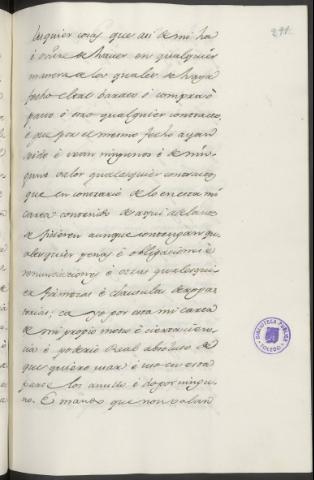 291.
lesquier cosas que asi de mi ha
é oviere de haver en qualquier
manera de los quales se haya
fecho el tal barato é compra ó
pacto é otro qualquier contracto,
é que por el mesmo fecho ayan
sido é sean ningunos é de nin-
gun valor qualesquier contractos
que en contrario de lo en esta mi
carta contenido de aqui adelante
se hicieren aunque contengan qua-
lesquier penas é obligaciones é
renunciaciones é otras qualesqui-
er firmezas é clausulas derogato-
rias; ca yo por esta mi carta
de mi propio motu é cierta cien-
cia é poderio Real absoluto de
que quiero usar é uso en esta
parte los anulo é do por ningu-
nos. E mando que non valan
BIBLIOTECA PUBLICA
TOLEDO